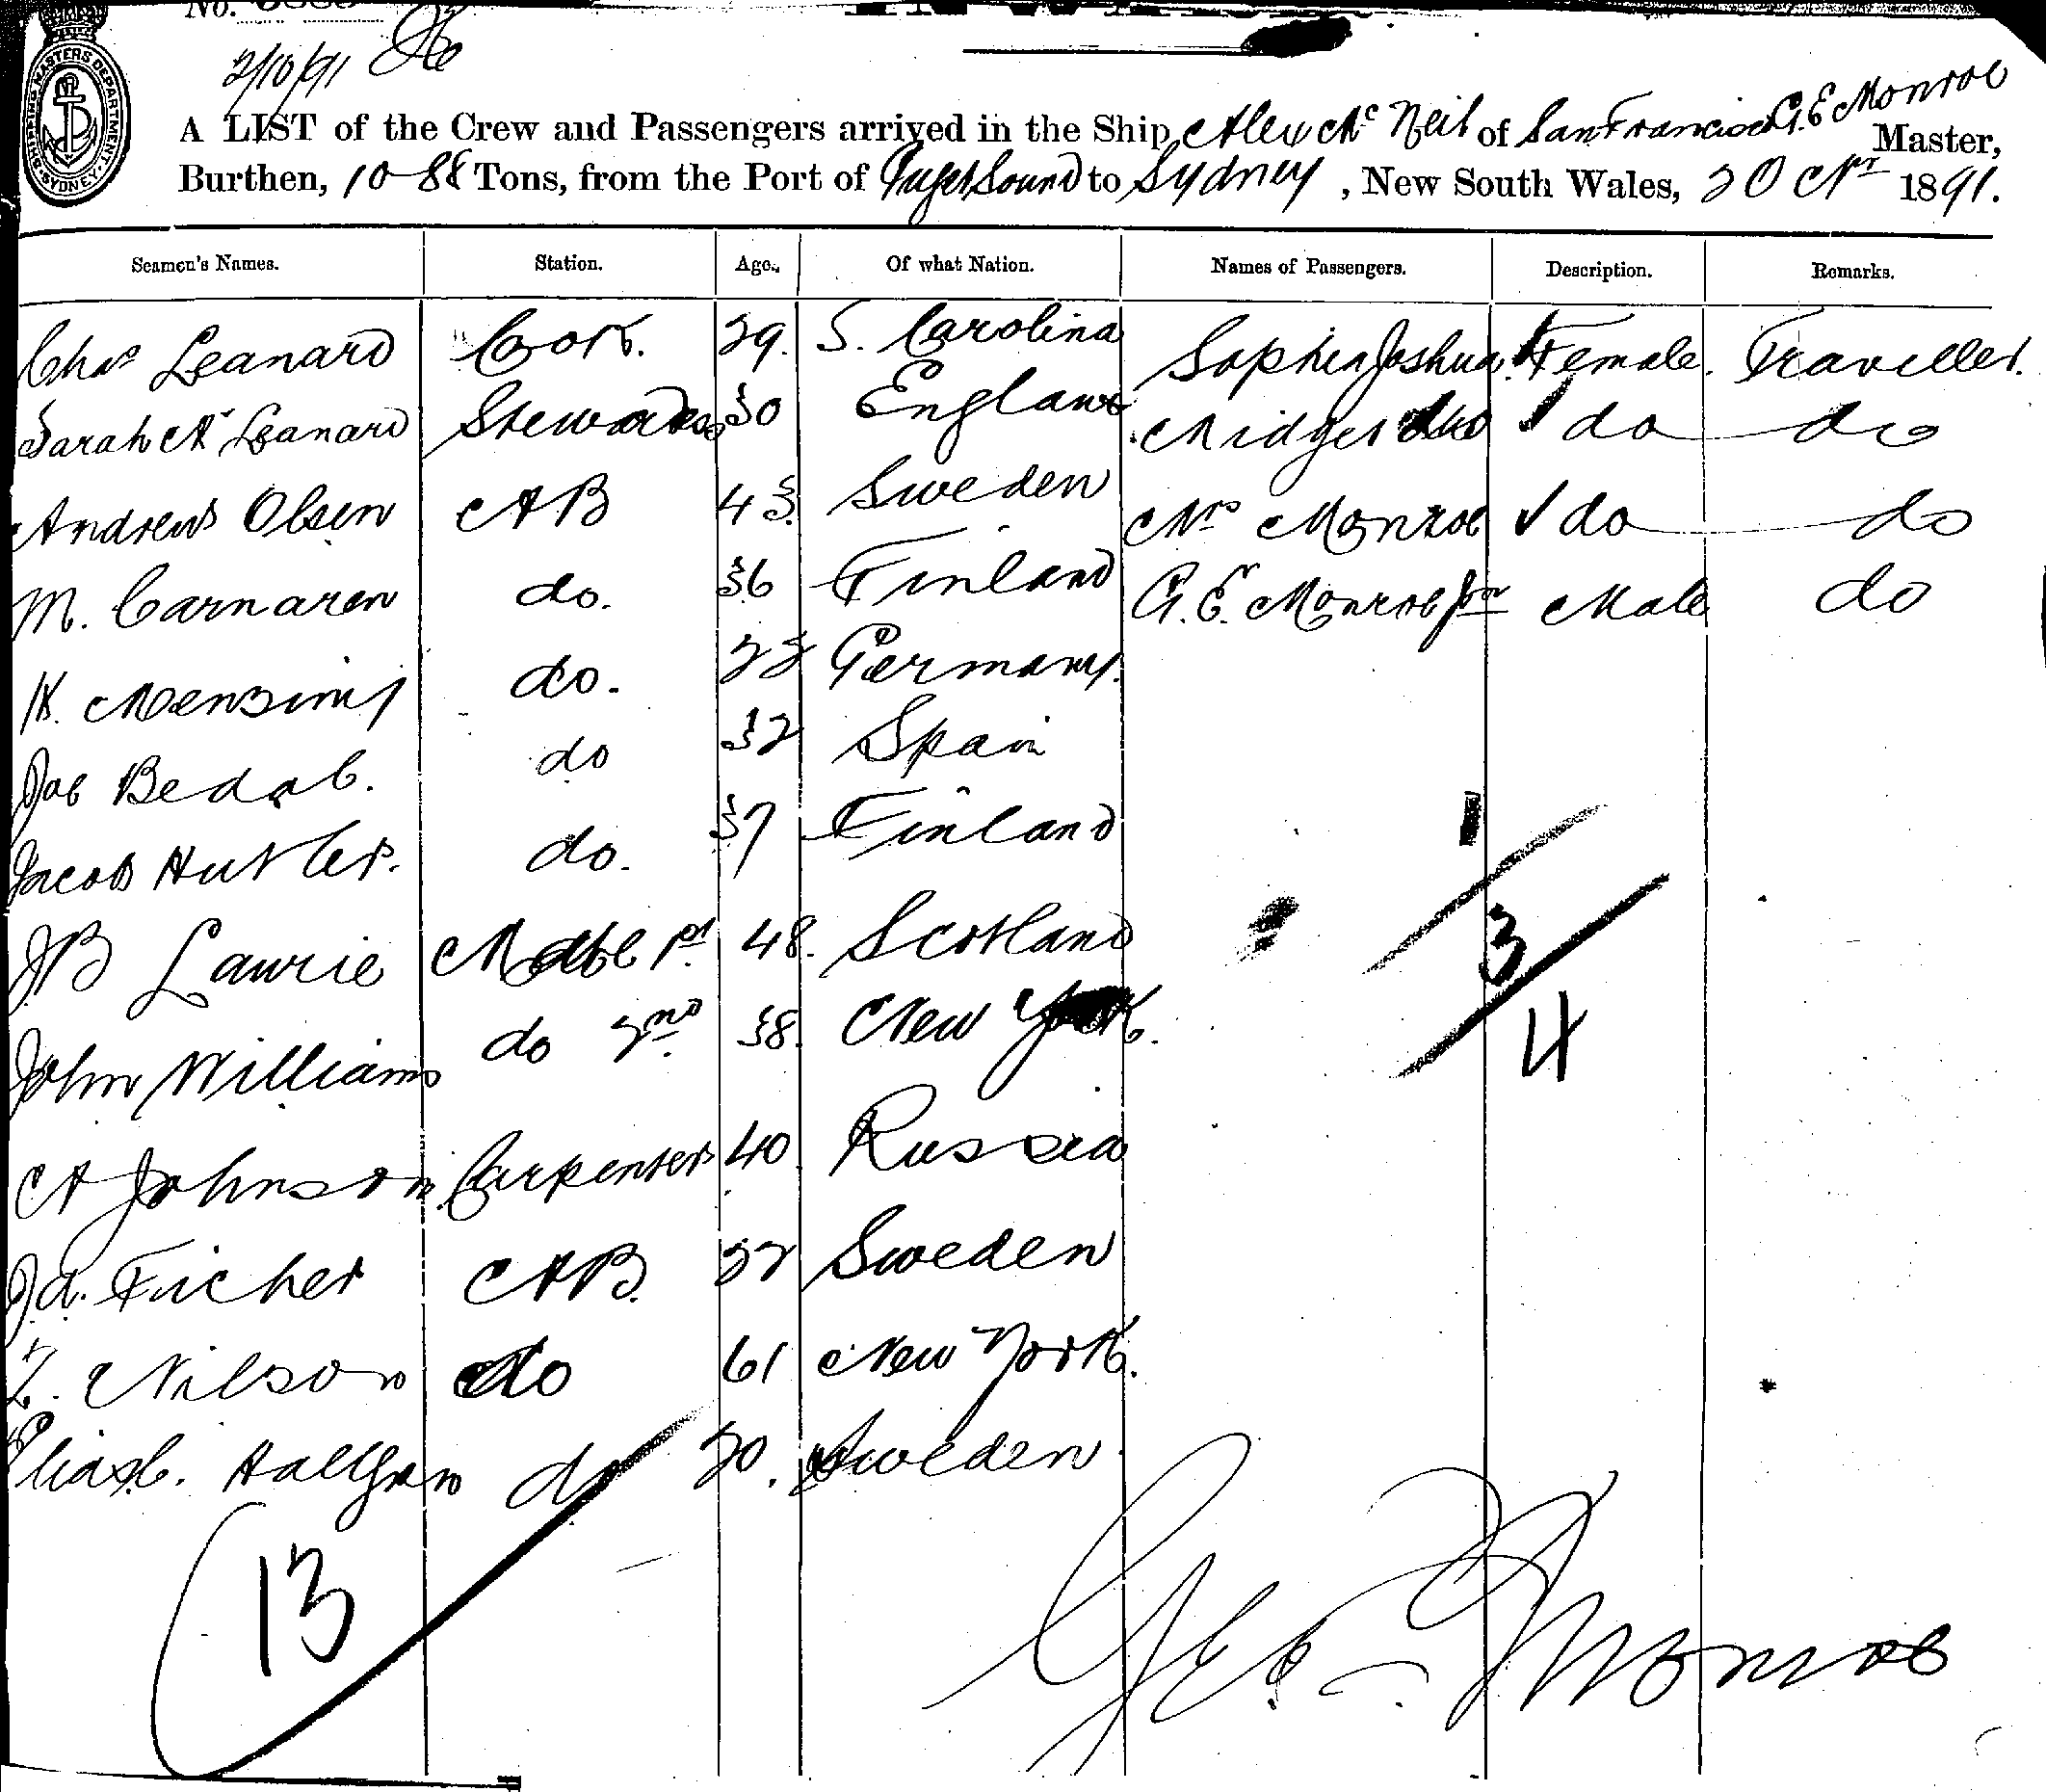 No.
2/10/91
SHIPPING MASTERS DEPARTMENT. SYDNEY.
A LIST of the Crew and Passengers arrived in the Ship Alex Mc Neil of San Francisco G. E Monroe Master,
Burthen, 10-88 Tons, from the Port of Puget Sound to Sydney, New South Wales, 2 Octr 1891.
Seamen's Names. Station. Age. Of what Nation. Names of Passengers. Description. Remarks.
Chas Leanard Cook. 29. S. Carolina Sophia Joshua Female. Traveller.
Sarah A Leanard Stewardess 30 England Midget do do do
Andrew Olsen AB 43 Sweden Mrs Monroe do do
M. Carnaren do. 36 Finland G. E. Monroe Jnr Male do
do. 22 Germany.
Joe do 32 Spain
Jacob Hutler. do. 37 Finland
JB Laurie Mate 1st 48. Scotland
John Williams do 2nd 38. New York.
A Johnson Carpenter 40 Russia
Ja. Fucher AB. 22 Sweden
Nilson do 61 New York.
do 20. Sweden
1
3
4
13
Geo. E. Monroe